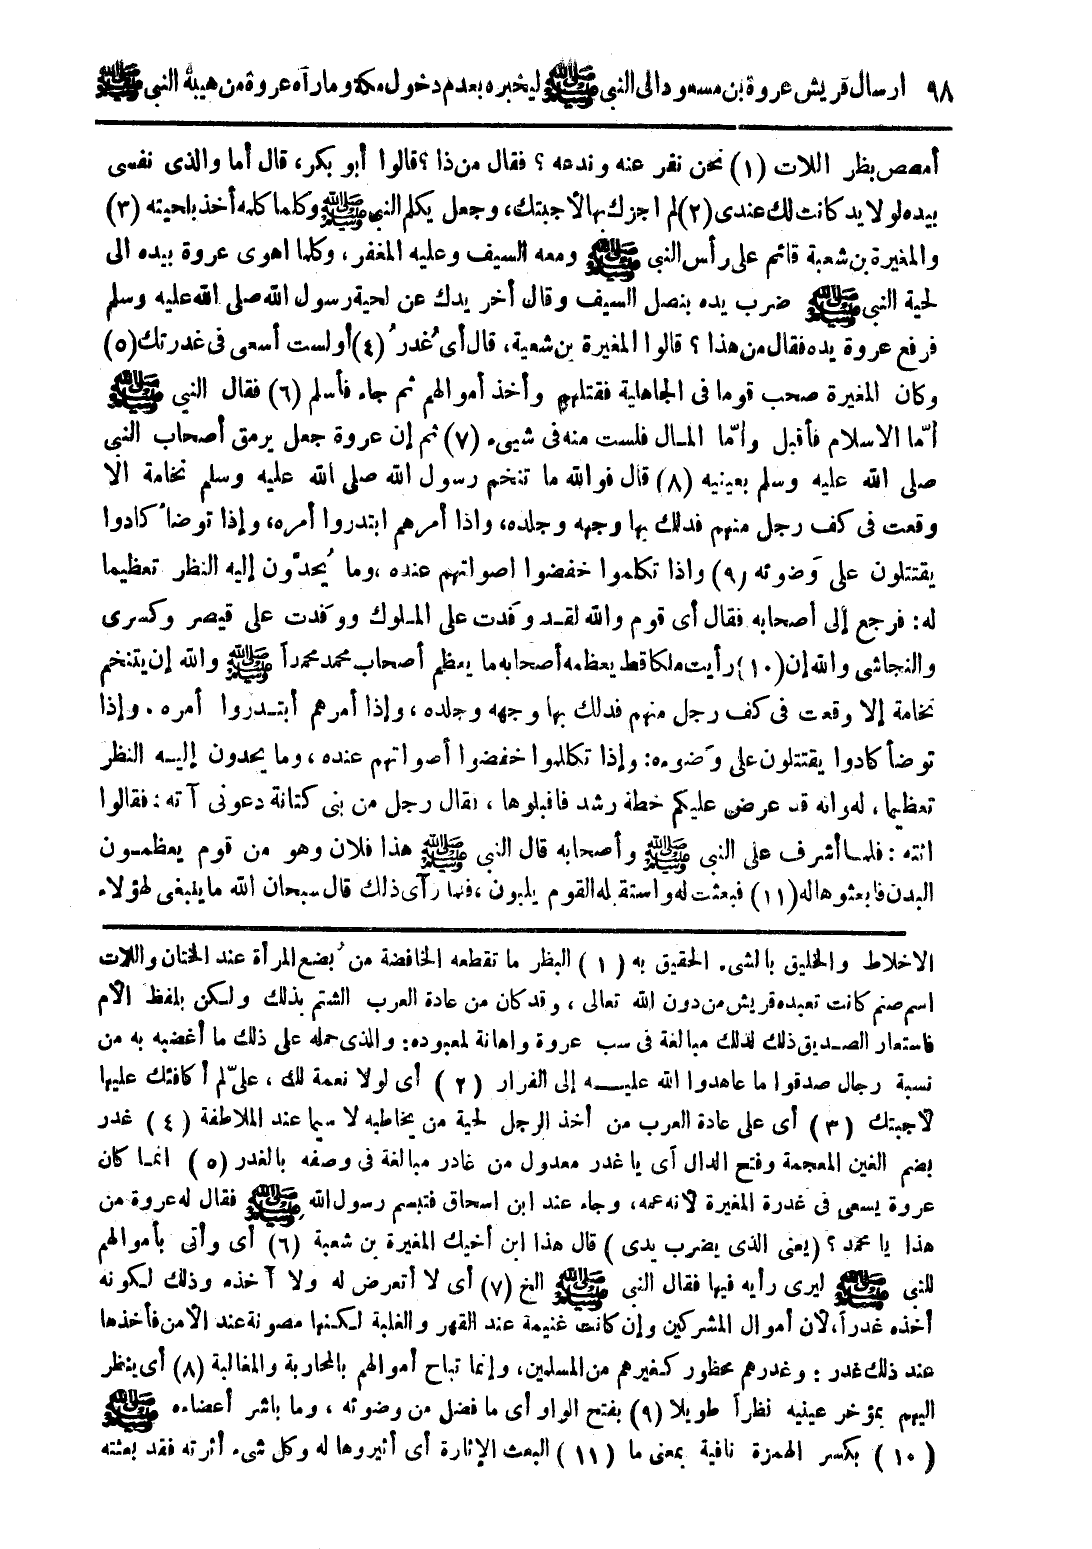 ٩٨ ارسال قريش عروة بن مسعود الى النبي ﷺ ليخبره بعدم دخول مكة وما رآه عروة من هيبة النبي ﷺ
أمصص بظر اللات (١) نحن نفر عنه وندعه ؟ فقال من ذا ؟ قالوا أبو بكر، قال أما والذى نفسى
بيده لولا يد كانت لك عندى (٢) لم اجزك بها لأجبتك، وجعل يكلم النبي ﷺ وكلما كلمه أخذ بلحيته (٣)
والمغيرة بن شعبة قائم على رأس النبي ﷺ ومعه السيف وعليه المغفر، وكلما اهوى عروة بيده الى
لحية النبي ﷺ ضرب يده بنصل السيف وقال أخر يدك عن لحية رسول الله صلى الله عليه وسلم
فرفع عروة يده فقال من هذا ؟ قالوا المغيرة بن شعبة، قال أى غُدرُ (٤) أولست أسعى فى غدرتك (٥)
وكان المغيرة صحب قوما فى الجاهلية فقتلهم وأخذ أموالهم ثم جاء فأسلم (٦) فقال النبي ﷺ
أمّا الاسلام فأقبل وأمّا المال فلست منه فى شيىء (٧) ثم إن عروة جعل يرمق أصحاب النبي
صلى الله عليه وسلم بعينيه (٨) قال فوالله ما تنخم رسول الله صلى الله عليه وسلم نخامة الا
وقعت فى كف رجل منهم فدلك بها وجهه وجلده، واذا أمرهم ابتدروا أمره، وإذا توضأ كادوا
يقتتلون على وَضوئه (٩) واذا تكلموا خفضوا اصواتهم عنده ، وما يُحدّون إليه النظر تعظيما
له: فرجع إلى أصحابه فقال أى قوم والله لقد وفدت على الملوك ووفدت على قيصر وكسرى
والنجاشى والله إن (١٠) رأيت ملكا قط يعظمه أصحابه ما يعظم أصحاب محمد محمداً ﷺ والله إن يتنخم
نخامة إلا وقعت فى كف رجل منهم فدلك بها وجهه وجلده ، وإذا أمرهم أبتدروا أمره . وإذا
توضأ كادوا يقتتلون على وَضوءه: وإذا تكلموا خفضوا أصواتهم عنده ، وما يحدون إليه النظر
تعظيما، له وانه قد عرض عليكم خطة رشد فاقبلوها ، فقال رجل من بنى كنانة دعونى آته : فقالوا
ائته : فلما أشرف على النبي ﷺ وأصحابه قال النبي ﷺ هذا فلان وهو من قوم يعظمون
البدن فابعثوها له (١١) فبعثت له واستقبله القوم يلبون ، فلما رآى ذلك قال سبحان الله ما ينبغى لهؤلاء
الاخلاط والخليق بالشى. الحقيق به (١) البظر ما تقطعه الخافضة من بُضع المرأة عند الختان واللات
اسم صنم كانت تعبده قريش من دون الله تعالى ، وقد كان من عادة العرب الشتم بذلك ولكن بلفظ الأم
فاستعار الصديق ذلك لذلك مبالغة فى سب عروة واهانة لمعبوده: والذى حمله على ذلك ما أغضبه به من
نسبة رجال صدقوا ما عاهدوا الله عليه إلى الفرار (٢) أى لولا نعمة لك ، علىّ لم أكافئك عليها
لأجبتك (٣) أى على عادة العرب من أخذ الرجل لحية من يخاطبه لا سيما عند الملاطفة (٤) غدر
بضم الغين المعجمة وفتح الدال آى يا غدر معدول من غادر مبالغة فى وصفه بالغدر (٥) انما كان
عروة يسعى فى غدرة المغيرة لأنه عمه، وجاء عند ابن اسحاق فتبسم رسول الله ﷺ فقال له عروة من
هذا يا محمد ؟ (يعنى الذى يضرب يدى) قال هذا ابن أخيك المغيرة بن شعبة (٦) أى وأتى بأموالهم
للنبي ﷺ ليرى رأيه فيها فقال النبي ﷺ الخ (٧) أى لا أتعرض له ولا آخذه وذلك لكونه
أخذه غدراً، لأن أموال المشركين وإن كانت غنيمة عند القهر والغلبة لكنها مصونة عند الأمن فأخذها
عند ذلك غدر : وغدرهم محظور كغيرهم من المسلمين، وإنما تباح أموالهم بالمحاربة والمغالبة (٨) أى ينظر
اليهم بمؤخر عينيه نظراً طويلا (٩) بفتح الواو أى ما فضل من وضوئه ، وما باشر أعضاءه ﷺ
(١٠) بكسر الهمزة نافية بمعنى ما (١١) البعث الإثارة أى أثيروها له وكل شىء أثرته فقد بعثته